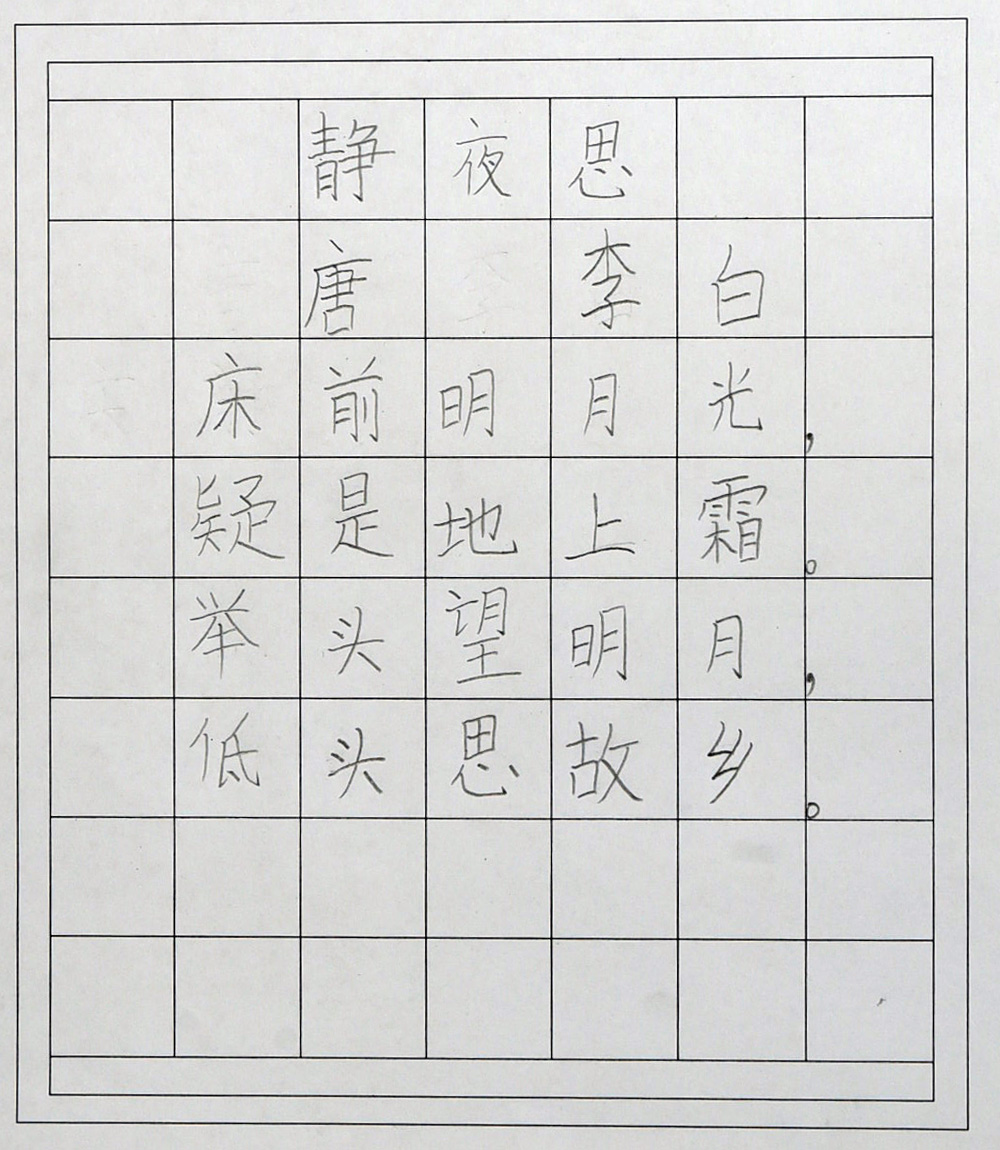 静夜思
唐 李白
床前明月光，
疑是地上霜。
举头望明月，
低头思故乡。